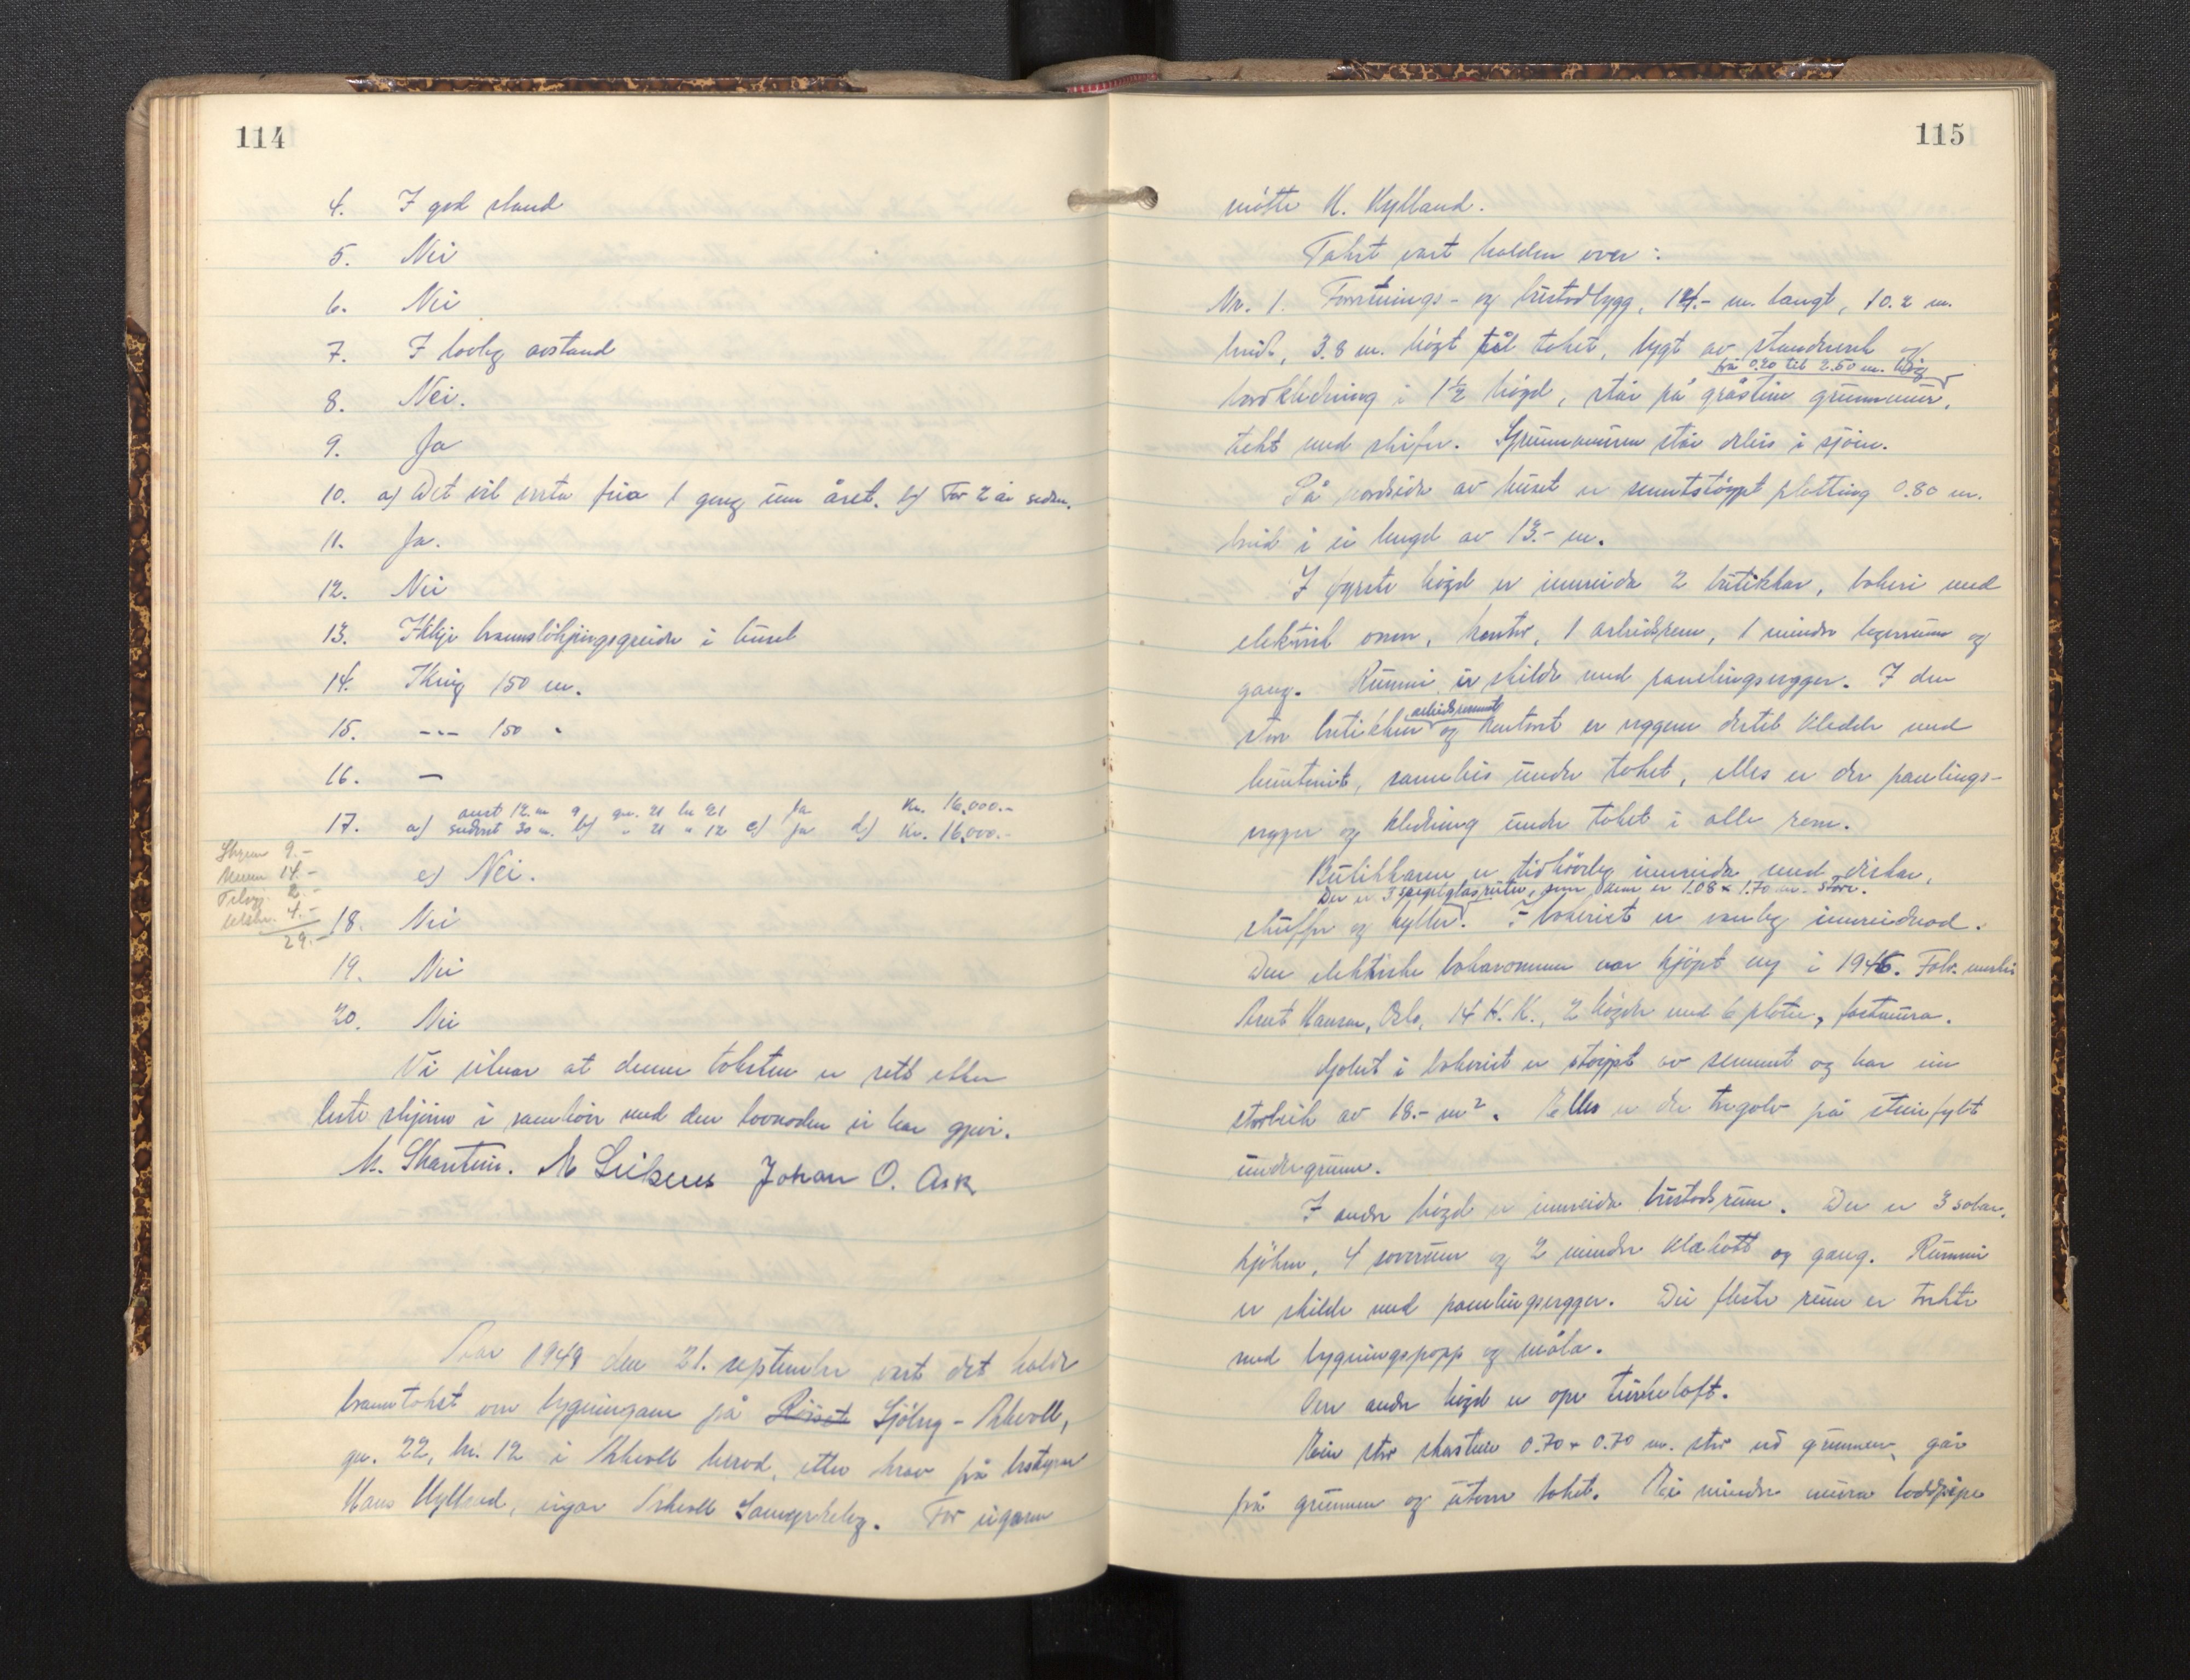 114
4. I god stand
5. Nei
6. Nei
7. I lovleg avstand
8. Nei.
9. Ja
10. a) Det vil verta feia 1 gong um året. b) For 2 år sidan.
11. Ja.
12. Nei
13. Ikkje brannsløkjingsgreide i huset
14. Ikring 150 m.
15. -"- 150 "
16. —
17. a) aust 12. m b) gn. 21 bn 21 c) Ja d) Kr. 16,000.-
sudvest 30 m. " 21 " 12 Ja Kr. 16,000.-
e) Nei.
Skyss 9.-
14.-
2.-
4.-
29.-
18. Nei
19. Nei
20. Nei
Vi vitnar at denne taksten er rett etter
beste skjøn i samhøve med den lovnaden vi har gjevi.
M. Skartun. M Leikens Johan O. Ask
Året 1949 den 21. september vart det halde
branntakst over bygningane på Sjølyg - Askvoll,
gn. 22, bn. 12 i Askvoll herad, etter krav frå bestyrar
Hans Kylland, eigar Askvoll Samyrkelag. For eigaren
115
møtte H. Kylland.
Takst vart halden over:
Nr. 1. Forretnings- og bustadbygg, 14.- m. langt, 10.2 m.
breidt, 3.8 m. høgt til taket, bygt av standverk og
frå 0.20 til 2.50 m. høg
bordkledning i 1½ høgd, står på gråstein grunnmur,
tekt med skifer. Grunnmuren står delvis i sjøen.
På nordsida av huset er sementstøypt platting 0.80 m.
breid i ei lengd av 13.- m.
I fyrste høgd er innreida 2 butikkar, bakeri med
elektrisk omn, kontor, 1 arbeidsrom, 1 mindre lagerrum og
gang. Rummi er skilde med panelingsvegger. I den
arbeidsrommet
store butikken og kontoret er veggene dertil kledde med
huntonit, samleis under taket, elles er der panelings-
vegger og kledning under taket i alle rom.
Butikkane er tidhøveleg innreida med diskar,
Der er 3 speglglasruter, som kvar er 1.08 x 1.70 m. store.
skuffer og hyller. I bakeriet er vanleg innreidnad.
Den elektriske bakaromnen var kjøpt ny i 1946. Fabr. merke
Berit Hansen, Oslo, 14 K.K., 2 høgder med 6 plater, fastmura.
Golvet i bakeriet er støypt av sement og har ein
storleik av 18.- m². Elles er der tregolv på steinfylt
undergrunn.
I andre høgd er innreida bustadsrum. Der er 3 stover,
kjøken, 4 soverum og 2 mindre klekott og gang. Rummi
er skilde med panelingsvegger. Dei fleste rum er trekte
med bygningspapp og måla.
Over andre høgd er ope tørkeloft.
Ein stor skorstein 0.70 x 0.70 m. stor ved grunnen, går
frå grunnen og utover taket. Ei mindre mura loddpipe